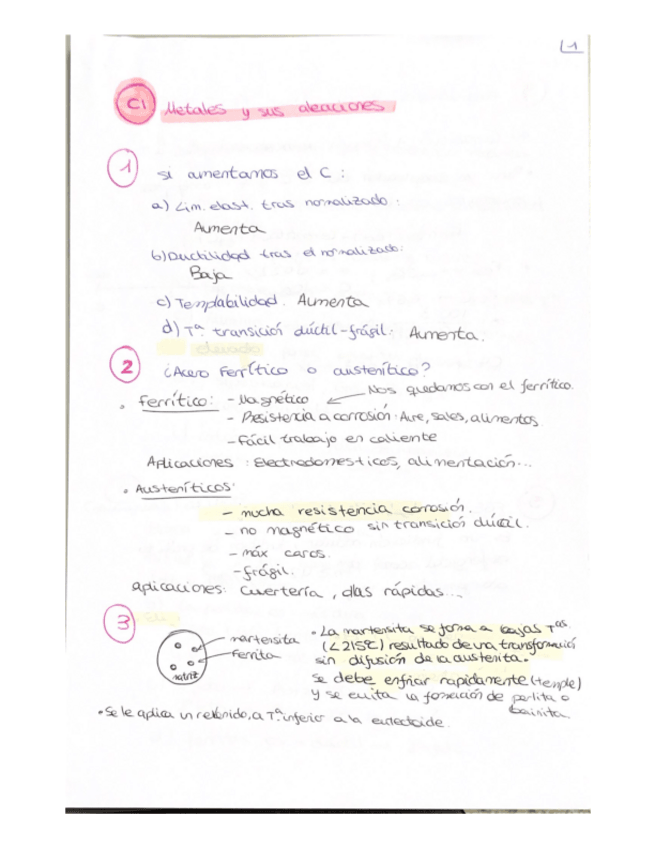 1
C1 Metales y sus aleaciones
1 si amentamos el C :
a) Lim. elast. tras normalizado :
Aumenta
b) Ductilidad tras el normalizado:
Baja
c) Templabilidad. Aumenta
d) Tª. transición dúctil-frágil: Aumenta.
2 ¿Acero Ferrítico o austenítico?
Nos quedamos con el ferrítico.
• Ferrítico: - Magnético
- Resistencia a corrosión: Aire, sales, alimentos
- Fácil trabajo en caliente
Aplicaciones : Electrodomesticos, alimentación...
• Austeníticos:
- mucha resistencia corrosión.
- no magnético sin transición dúctil.
- máx caros.
- frágil.
aplicaciones: Cuertería, ollas rápidas...
3
martensita
Ferrita
matriz
• La martensita se forma a bajas Tªs
(<215ºC) resultado de una transformació
sin difusión de la austenita.
Se debe enfriar rapidamente (temple)
y se evita la formación de perlita o
bainita.
• Se le aplica un revenido, a Tª inferior a la eutectoide.